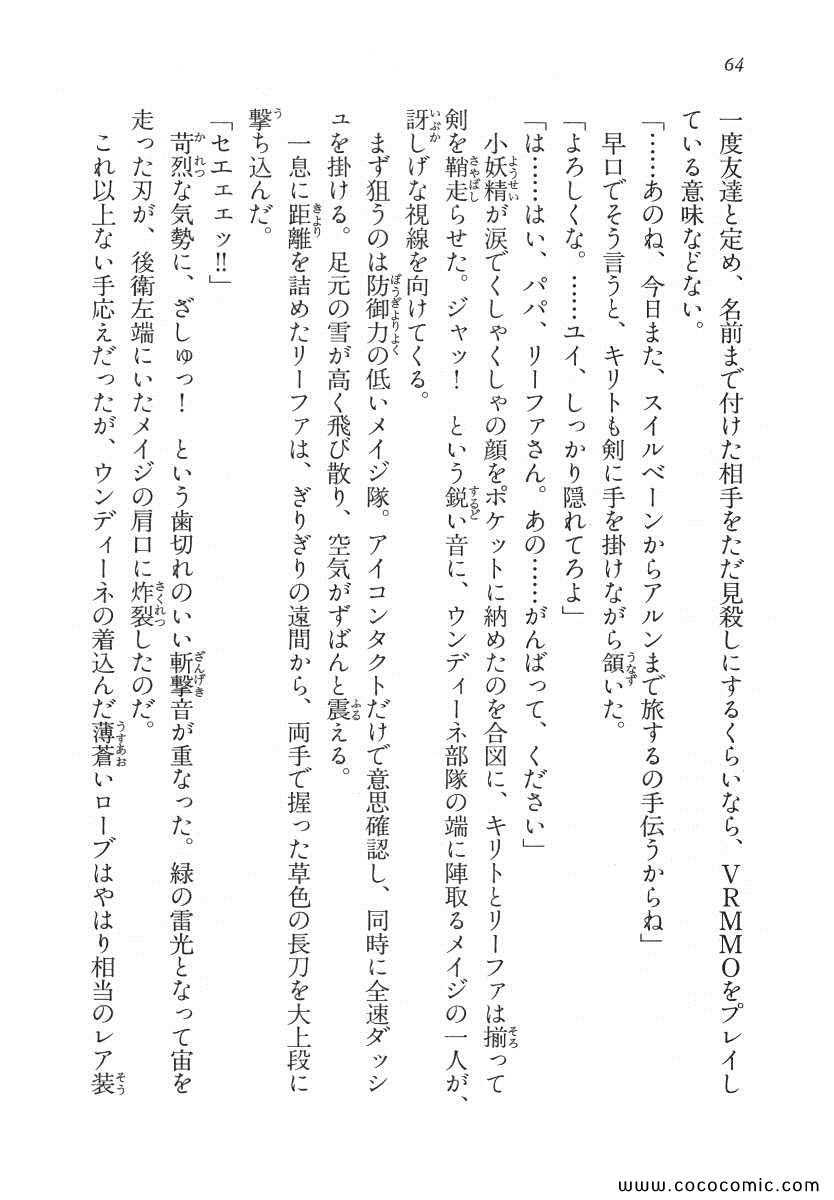 64
一度友達と定め、名前まで付けた相手をただ見殺しにするくらいなら、ＶＲＭＭＯをプレイし
ている意味などない。
「……あのね、今日また、スイルベーンからアルンまで旅するの手伝うからね」
早口でそう言うと、キリトも剣に手を掛けながら頷いた。
「よろしくな。……ユイ、しっかり隠れてろよ」
「は……はい、パパ、リーファさん。あの……がんばって、ください」
小妖精が涙でくしゃくしゃの顔をポケットに納めたのを合図に、キリトとリーファは揃って
剣を鞘走らせた。ジャッ！　という鋭い音に、ウンディーネ部隊の端に陣取るメイジの一人が、
訝しげな視線を向けてくる。
まず狙うのは防御力の低いメイジ隊。アイコンタクトだけで意思確認し、同時に全速ダッシ
ュを掛ける。足元の雪が高く飛び散り、空気がずばんと震える。
一息に距離を詰めたリーファは、ぎりぎりの遠間から、両手で握った草色の長刀を大上段に
撃ち込んだ。
「セエェェッ!!」
苛烈な気勢に、ざしゅっ！　という歯切れのいい斬撃音が重なった。緑の雷光となって宙を
走った刃が、後衛左端にいたメイジの肩口に炸裂したのだ。
これ以上ない手応えだったが、ウンディーネの着込んだ薄蒼いローブはやはり相当のレア装
www.cococomic.com